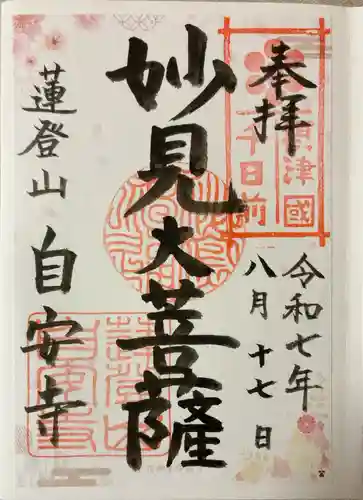 奉拝
令和七年
八月十七日
妙見大菩薩
蓮登山
自安寺
千日前